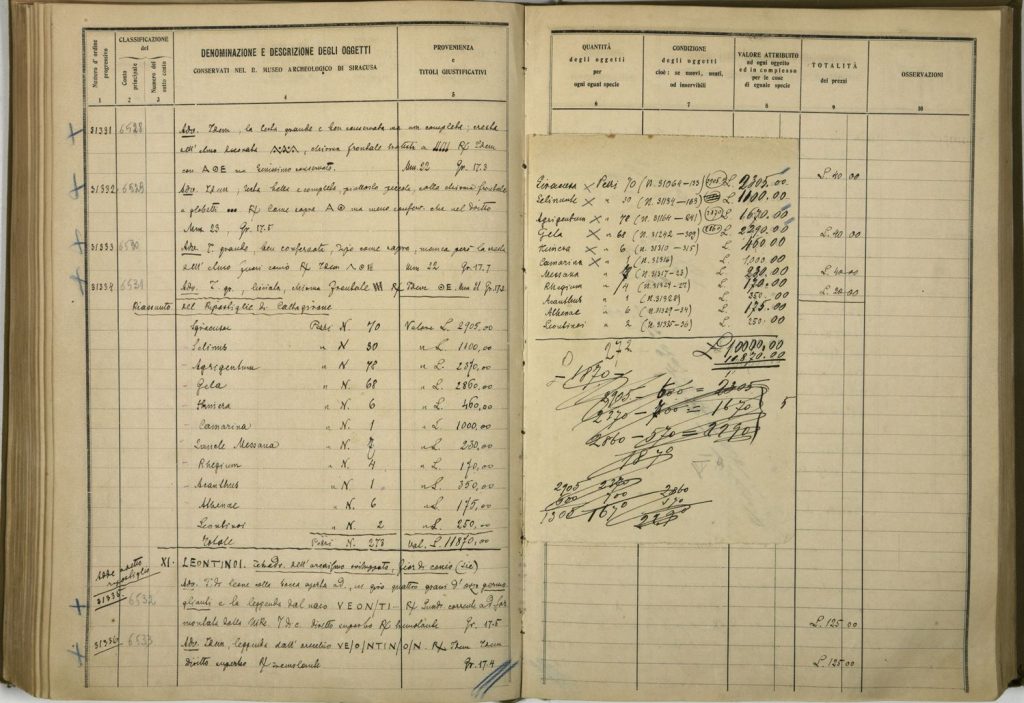 Numero d'ordine progressivo
CLASSIFICAZIONE del
Conto principale
Numero del sotto conto
DENOMINAZIONE E DESCRIZIONE DEGLI OGGETTI
CONSERVATI NEL R. MUSEO ARCHEOLOGICO DI SIRACUSA
PROVENIENZA
e
TITOLI GIUSTIFICATIVI
1 2 3 4 5
31331 6528 Adro. Idem, la testa grande e ben conservata ma non completa; cresta
dell'elmo, chioma frontale a R/ Idem
con ΑΘΕ ma benissimo conservato. Mm. 22 Gr. 17.3
31332 6529 Adro. Idem, testa bella e completa, piuttosto piccola, sotto chioma frontale
a globetti R/ Come sopra ΑΘ ma meno conserv. che nel diritto
Mm. 23, Gr. 17.5
31333 6530 Adro. T. grande, ben conservata, tipo come sopra, manca però la cresta
dell'elmo fuori conio R/ Idem ΑΘΕ Mm 22 Gr. 17.7
31334 6531 Adro. T. gr., chioma frontale R/ Idem ΘΕ. Mm. 21 Gr. 17.2
Riassunto del Ripostiglio di Caltagirone
Siracusa Pezzi N. 70 Valore L. 2905,00
Selinus " N 30 " L. 1100,00
Agrigentum " N. 78 " L. 2370,00
Gela " N. 68 " L. 2860,00
Himera " N. 6 " L. 460,00
Camarina " N. 1 " L. 1000,00
Zancle Messana " N. 7 " L. 230,00
Rhegium " N. 4 " L. 170,00
Acanthus " N. 1 " L. 350,00
Athenae " N. 6 " L. 175,00
Leontinoi " N. 2 " L. 250,00
Totale Pezzi N. 273 Val. L. 11870,00
XI. LEONTINOI. Tetradr. dell'arcaismo sviluppato, fior di conio (sic)
Adde nostro ripostiglio
31335 6532 Adro. T. di leone colla bocca aperta a d., in giro quattro grani d'orzo germo
glianti e la leggenda dal naso VEON/TI
Diritto superbo R/ Gr. 17.5
31336 6533 Adro. Idem, leggenda dall'orecchio VE/O/NTIN/O/N. R/ Idem Idem
Diritto superbo R/ Gr. 17.4
QUANTITÀ
degli oggetti
per
ogni ogni specie
CONDIZIONE
degli oggetti
cioè: se nuovi, usati,
od inservibili
VALORE ATTRIBUITO
ad ogni oggetto
ed in complesso
per le cose
di eguale specie
TOTALITÀ
dei prezzi
OSSERVAZIONI
6 7 8 9 10
L. 40.00
L. 40.00
L. 40.00
L. 30.00
L. 125.00
L. 125.00
Siracusa × Pezzi 70 (n. 31064-133) 2905 L. 2305.00
Selinunte × " 30 (n. 31134-163) L. 1100.00
Agrigentum × " 70 (n. 31164-241) 2370 L. 1670.00
Gela × " 68 (n. 31242-309) 2860 L. 2290.00
Himera × " 6 (n. 31310-315) L. 460.00
Camarina × " 1 (n. 31316) L. 1,000.00
Messana " 7 (n. 31317-23) L. 230.00
Rhegium " 4 (n. 31324-27) L. 170.00
Acanthus " 1 (n. 31328) L. 350.00
Athenae " 6 (n. 31329-34) L. 175.00
Leontinoi " 2 (n. 31335-36) L. 250.00
272 £ 10000.00
10,870.00
1870
2905 - 600 = 2305
2370 - 700 = 1670
2860 - 570 = 2290
1870
2905 2370
600 700 2860
1305 1670 570
2290